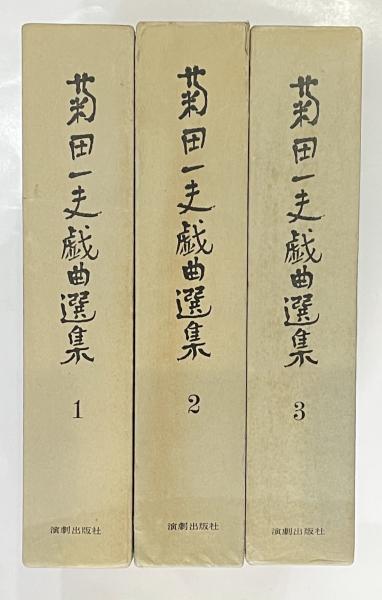 菊田一夫戯曲選集
1
演劇出版社
菊田一夫戯曲選集
2
演劇出版社
菊田一夫戯曲選集
3
演劇出版社